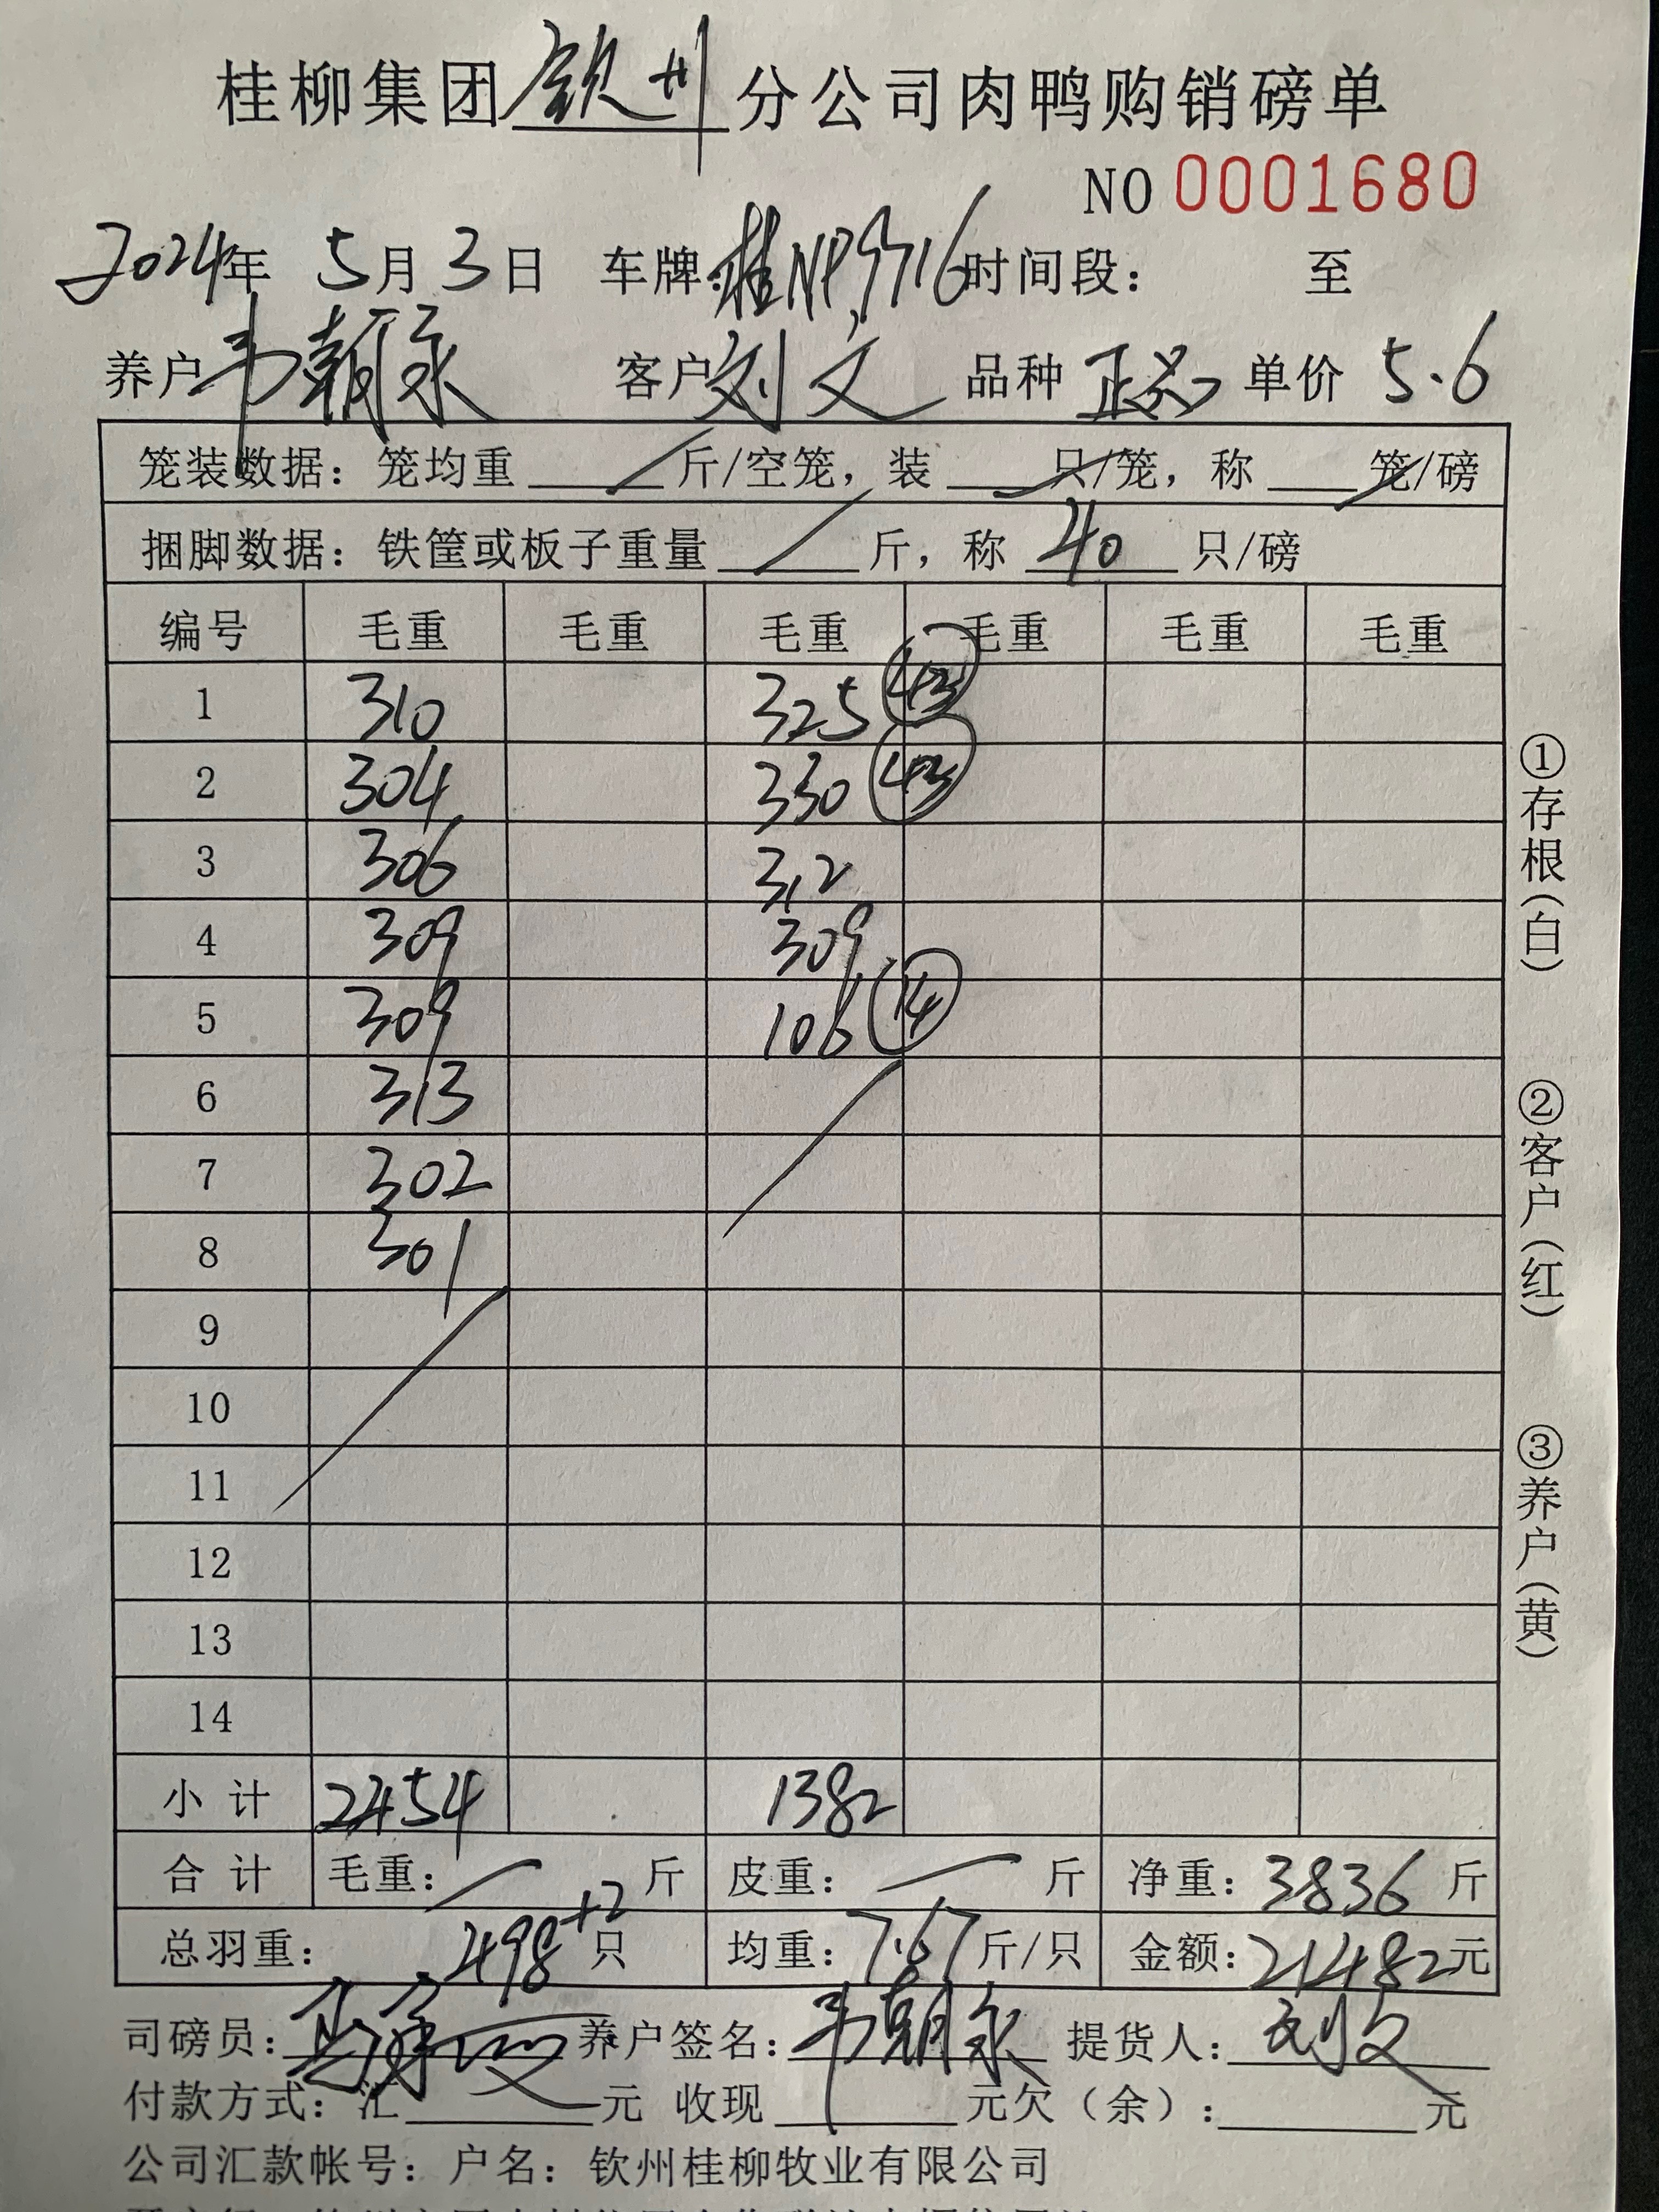 桂柳集团 钦州 分公司肉鸭购销磅单
NO 0001680
2024年 5月3日 车牌:桂NP9716 时间段: 至
养户 韦朝永 客户 刘文 品种 正品 单价 5.6
笼装数据: 笼均重 斤/空笼, 装 只/笼, 称 笼/磅
捆脚数据: 铁筐或板子重量 斤, 称 40 只/磅
编号 毛重 毛重 毛重 毛重 毛重 毛重
1 310 325 43
2 304 330 43
3 306 312
4 309 309
5 309 106 14
6 313
7 302
8 301
9
10
11
12
13
14
小计 2454 1382
合计 毛重: 斤 皮重: 斤 净重: 3836 斤
总羽重: 498+2 只 均重: 7.67 斤/只 金额: 21482元
司磅员: 养户签名: 韦朝永 提货人: 刘文
付款方式: 汇 元 收现 元欠(余): 元
公司汇款帐号: 户名: 钦州桂柳牧业有限公司
①存根(白)
②客户(红)
③养户(黄)